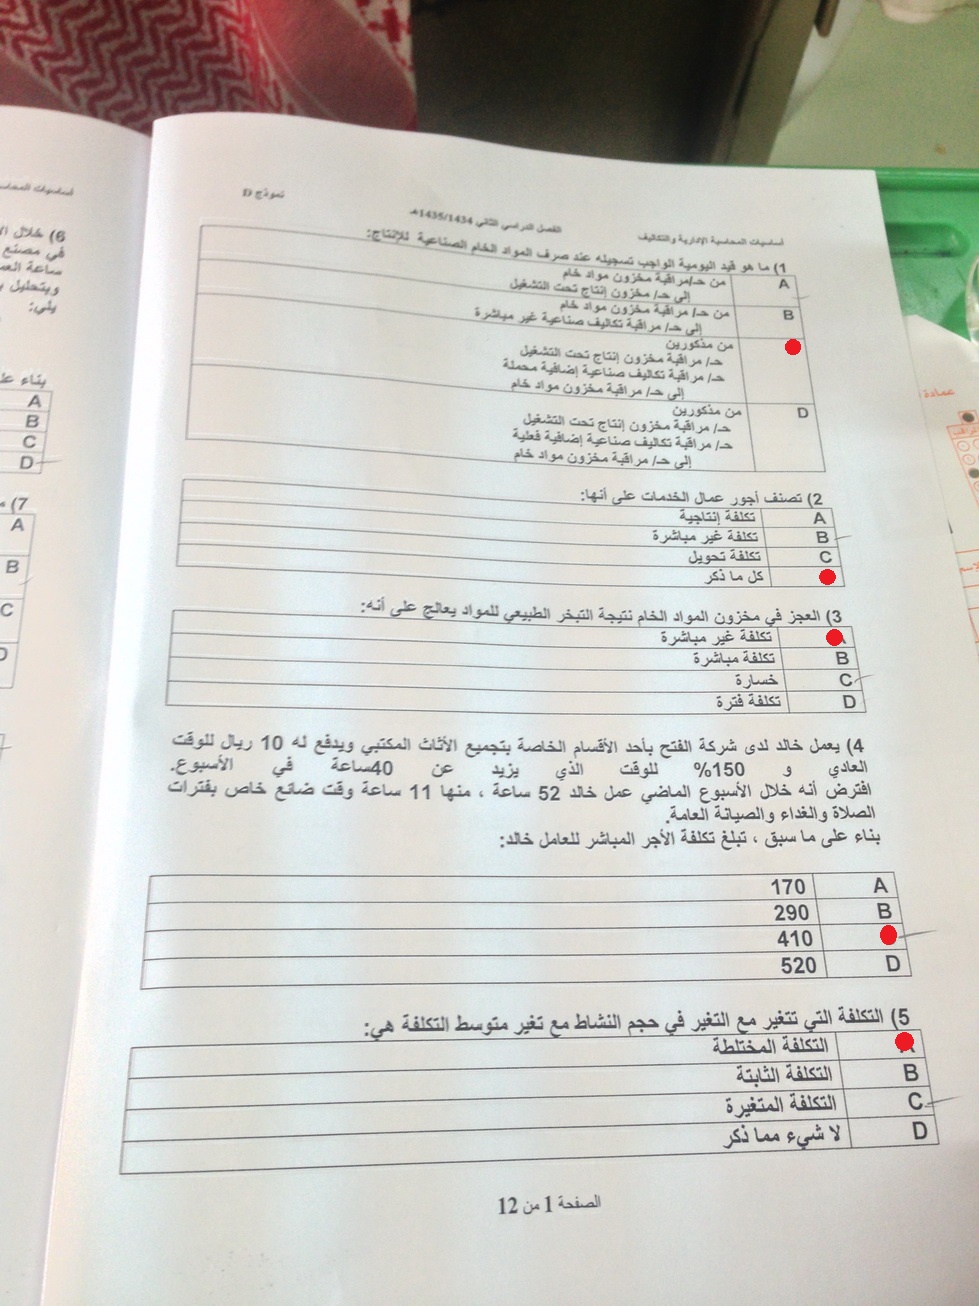 أساسيات المحاسبة الإدارية والتكاليف
الفصل الدراسي الثاني 1435/1434هـ
نموذج D
1) ما هو قيد اليومية الواجب تسجيله عند صرف المواد الخام الصناعية للإنتاج:
A من حـ/مراقبة مخزون مواد خام
إلى حـ/ مخزون إنتاج تحت التشغيل
B من حـ/ مراقبة مخزون مواد خام
إلى حـ/ مراقبة تكاليف صناعية غير مباشرة
من مذكورين
حـ/ مراقبة مخزون إنتاج تحت التشغيل
حـ/ مراقبة تكاليف صناعية إضافية محملة
إلى حـ/ مراقبة مخزون مواد خام
D من مذكورين
حـ/ مراقبة مخزون إنتاج تحت التشغيل
حـ/ مراقبة تكاليف صناعية إضافية فعلية
إلى حـ/ مراقبة مخزون مواد خام
2) تصنف أجور عمال الخدمات على أنها:
A تكلفة إنتاجية
B تكلفة غير مباشرة
C تكلفة تحويل
كل ما ذكر
3) العجز في مخزون المواد الخام نتيجة التبخر الطبيعي للمواد يعالج على أنه:
A تكلفة غير مباشرة
B تكلفة مباشرة
C خسارة
D تكلفة فترة
4) يعمل خالد لدى شركة الفتح بأحد الأقسام الخاصة بتجميع الأثاث المكتبي ويدفع له 10 ريال للوقت
العادي و 150% للوقت الذي يزيد عن 40ساعة في الأسبوع.
افترض أنه خلال الأسبوع الماضي عمل خالد 52 ساعة ، منها 11 ساعة وقت ضائع خاص بفترات
الصلاة والغداء والصيانة العامة.
بناء على ما سبق ، تبلغ تكلفة الأجر المباشر للعامل خالد:
A 170
B 290
410
D 520
5) التكلفة التي تتغير مع التغير في حجم النشاط مع تغير متوسط التكلفة هي:
A التكلفة المختلطة
B التكلفة الثابتة
C التكلفة المتغيرة
D لا شيء مما ذكر
الصفحة 1 من 12
6) خلال
في مصنع
ساعة
وبتحليل
يلي:
بناء
A
B
C
D
7)
A
B
C
D
عمادة